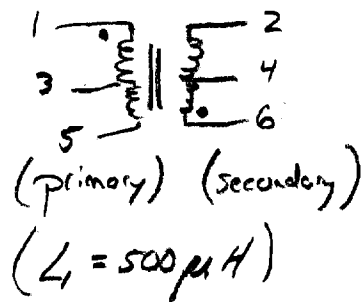 1 2
3 4
5 6
(primary) (secondary)
(L₁ = 500 μH)